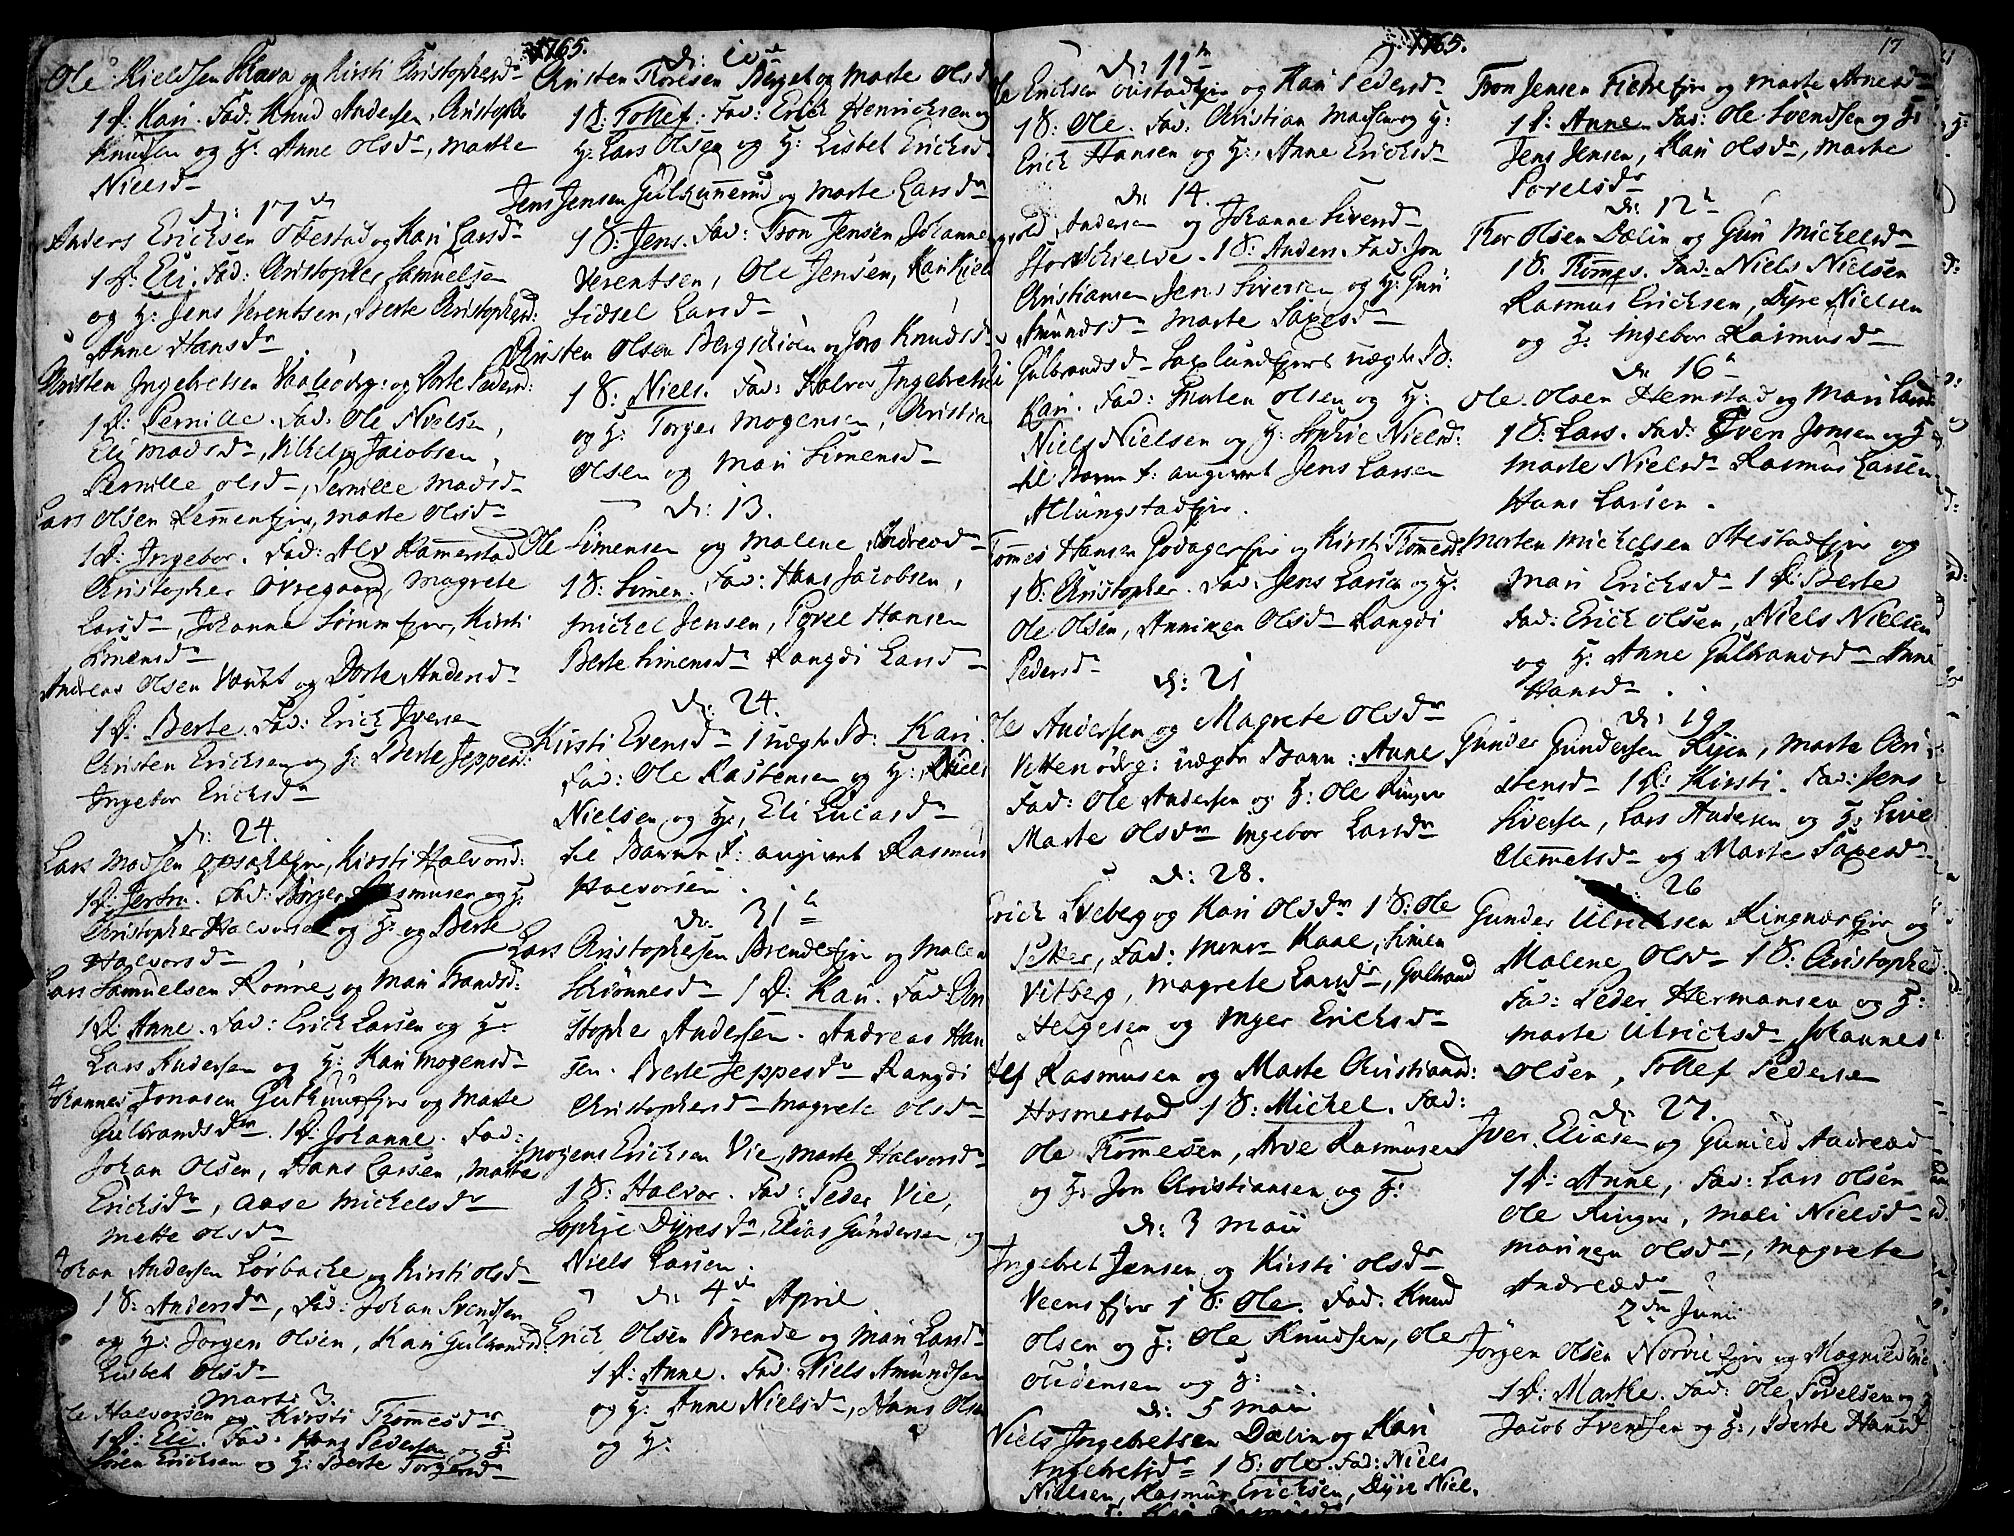 1765.
Ole Kieldsen Skava og Kirsti Christophersdr
1 D: Kari. Fad: Knud Andersen, Christopher
Knudsen og H: Anne Olsdr, Marthe
Nielsdr
d: 17dn
Anders Ericksen Stestad og Kari Larsdr
1 D: Eli. Fad: Christopher Samuelsen
og H: Jens Verentsen, Berte Christophersd:
Anne Hansdr
Christen Ingebretsen og Dorte Pedersd:
1 D: Pernille. Fad: Ole Nielsen,
Eli Madsdr, Vilhelm Jacobsen,
Pernille Olsdr, Pernille Madsdr
Lars Olsen Remmen Marte Olsdr
1 D: Ingebor. Fad: Alv Kammerstad
Christopher Øvregaard, Magrete
Larsdr, Johanne Kirsti
Simensdr
Andreas Olsen og Dorte Andersdr
1 D: Berte. Fad: Erick Iversen
Christen Ericksen og H: Berte Jeppesd:
Ingebor Ericksdr
d: 24.
Lars Madsen Kirsti Halvorsd:
1 D: Jertru. Fad: Børger Rasmusen og H:
Christopher Halvorsen og H: og Berte
Halvorsdr
Lars Samuelsen Rønne og Mari Trondsd:
1 D: Anne. Fad: Erick Larsen og H:
Lars Andersen og H: Kari Mogensdr
Johannes Jonasen og Marte
Gulbrandsdr. 1 D: Johanne. Fad:
Johan Olsen, Hans Larsen, Marte
Ericksdr, Aase Michelsdr
Mette Olsdr
Johan Andersen Lørbache og Kirsti Olsdr
1 S: Andersdr, Fad: Johan Svendsen
og H: Jørgen Olsen, Kari Gulbrandsd:
Lisbet Olsdr
Marti 3.
Ole Halvorsen og Kirsti Tommesdr
1 D: Eli. Fad: Hans Pedersen og H:
Søren Ericksen og H: Berte Torgersdr
d: 10de
Christen Toresen Berget og Marte Olsd
1 S: Tollef. Fad: Erick Henricksen og
H: Lars Olsen og H: Lisbet Ericksd
Jens Jensen Gulkunnerud og Marte Larsdr
1 S: Jens. Fad: Tron Jensen Johannes
Verentsen, Ole Jensen, Kari
Sidsel Larsdr
Christen Olsen Bergschiøen og Goro Knudsd
1 S: Niels. Fad: Halvor Ingebretsen
og H: Torger Mogensen, Christian
Olsen og Mari Simensdr
d: 13.
Ole Simensen og Malene Andreædr
1 S: Simen. Fad: Hans Jacobsen,
Michel Jensen, Povel Hansen
Berte Simensdr Rangdi Larsdr
d: 24.
Kirsti Evensdr 1 uægte B: Kari.
Fad: Ole Rastensen og H: Niels
Nielsen og H:, Eli Lucasdr
til Barne F: angivet Rasmus
Halvorsen.
d: 31te
Lars Christophersen Brende og Malen
Schiønnesdr 1 D: Kari. Fad: Chri
stopher Andersen. Andreas Han
sen. Berte Jeppesdr Rangdi
Christophersdr Magrete Olsdr
Mogens Ericksen Vie, Marte Halvorsdr
1 S: Halvor. Fad: Peder Vie,
Sophie Dyresdr, Elias Gundersen, og
Niels Larsen.
d: 4de April
Erick Olsen Brende og Mari Larsdr
1 D: Anne. Fad: Niels Amundsen
og H: Anne Nielsdr, Hans Olsen
og H:
1765.
d: 11te
Ole Ericksen og Kari Pedersdr
1 S: Ole. Fad: Christian Madsen og H:
Erick Hansen og H:, Anne Ericksdr
d: 14.
Andersen og Johanne Siversdr
1 S: Anders. Fad: Jon
Christiansen Jens Siversen og H: Guri
Amundsdr Marte Saxesdr
Gulbrandsdr uægte B:
Kari. Fad: Morten Olsen og H:
Niels Nielsen og H: Sophie Nielsd:
til Barne F: angivet Jens Larsen
Allungstad
Tommes Hansen Godager og Kirsti Tommesd:
1 S: Christopher. Fad: Jens Larsen og H:
Ole Olsen, Anniken Olsdr Rangdi
Pedersdr
d: 21
Ole Andersen og Magrete Olsdr
uægte Barn: Anne
Fad: Ole Andersen og H: Ole Ringer
Marte Olsdr Ingebor Larsdr
d: 28.
Erick Sveberg og Kari Olsdr 1 S: Ole
Peder, Fad: Monsr Kaae, Simen
Vitberg, Magrete Larsdr, Gulbrand
Helgesen og Inger Ericksdr
Rasmusen og Marte Christiansd:
Hosmestad 1 S: Michel. Fad:
Ole Tommesen, Arve Rasmusen
og H: Jon Christiansen og H:
d: 3 Maii
Ingebret Jensen og Kirsti Olsdr
Veens 1 S: Ole. Fad: Knud
Olsen og H: Ole Knudsen, Ole
Oudensen og H:
d: 5 Maii
Niels Ingebretsen Dælin og Kari
Ingebretsdr 1 S: Ole. Fad: Niels
Nielsen, Rasmus Ericksen, Dyre Niel
17
Tron Jensen og Marte Arnesdr
1 D: Anne. Fad: Ole Svendsen og H:
Jens Jensen, Kari Olsdr, Marte
Povelsdr
d: 12te
Thor Olsen Dælin og Guri Michelsdr
1 S: Tommes. Fad: Niels Nielsen
Rasmus Ericksen, Dyre Nielsen
og H: Ingebor Rasmusdr
d: 16te
Ole Olsen Hemstad og Mari Larsd
1 S: Lars. Fad: Even Jonsen og H
Marte Nielsdr Rasmus Larsen
Hans Larsen.
Morten Michelsen og
Mari Ericksdr 1 D: Berte
Fad: Erick Olsen, Niels Nielsen
og H: Anne Gulbrandsdr Anne
Hansdr.
d: 19
Gunder Gundersen Risen, Marte Chri
stensdr 1 D: Kirsti. Fad: Jens
Siversen, Lars Andersen og H: Live
Clemmetsdr og Marte Saxesdr
26
Gunder Ulricksen og
Malene Olsdr 1 S: Christopher
Fad: Peder Hermansen og H:
Marte Ulricksdr Johannes
Olsen, Tollef Pedersen
d: 27.
Iver Eliasen og Gunild Andreæd
1 D: Anne, Fad: Lars Olsen
Ole Ringer, Mali Nielsdr
Marinen Olsdr, Magrete
Andreædr
2den Juni
Jørgen Olsen og Magnild
1 D: Marthe. Fad: Ole Povelsen og H
Jacob Svendsen og H:, Berte Hansd